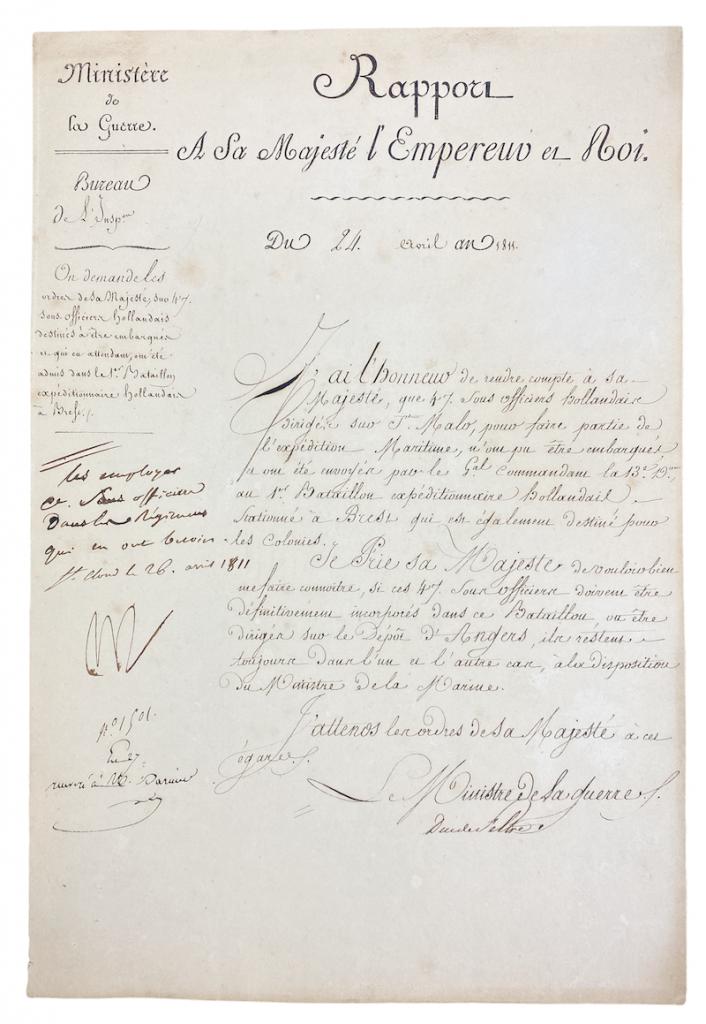 Ministère
de
la Guerre.
Bureau
de L'Insp.on
On demande les
ordres de Sa Majesté, sur 47.
sous officiers hollandais
destinés à être embarqués
et qui en attendant, ont été
admis dans le 1.er Bataillon
expéditionnaire hollandais
à Brest./.
les employer
ce sous officier
dans les Régimens
qui en ont besoin
S.t Cloud le 26. avril 1811
N
n.o 1501.
renvoié à M.
Rapport
A Sa Majesté l'Empereur et Roi.
Du 24. avril an 1811.
J'ai l'honneur de rendre compte à sa
Majesté, que 47. Sous officiers hollandais
dirigés sur S.t Malo, pour faire partie de
l'expédition Maritime, n'ont pu être embarqués
et ont été envoyés par le G.al Commandant la 13.e D.on
au 1.er Bataillon expéditionnaire hollandais
stationné à Brest qui est également destiné pour
les Colonies.
Je Prie sa Majesté de vouloir bien
me faire connoitre, si ces 47. Sous officiers doivent être
définitivement incorporés dans ce Bataillon, ou être
dirigés sur le Dépôt d'Angers, ils restent
toujours dans l'un et l'autre cas, à la disposition
du Ministre de la Marine.
J'attends les ordres de sa Majesté à cet
égard./.
Le Ministre de la guerre./.
Duc de Feltre